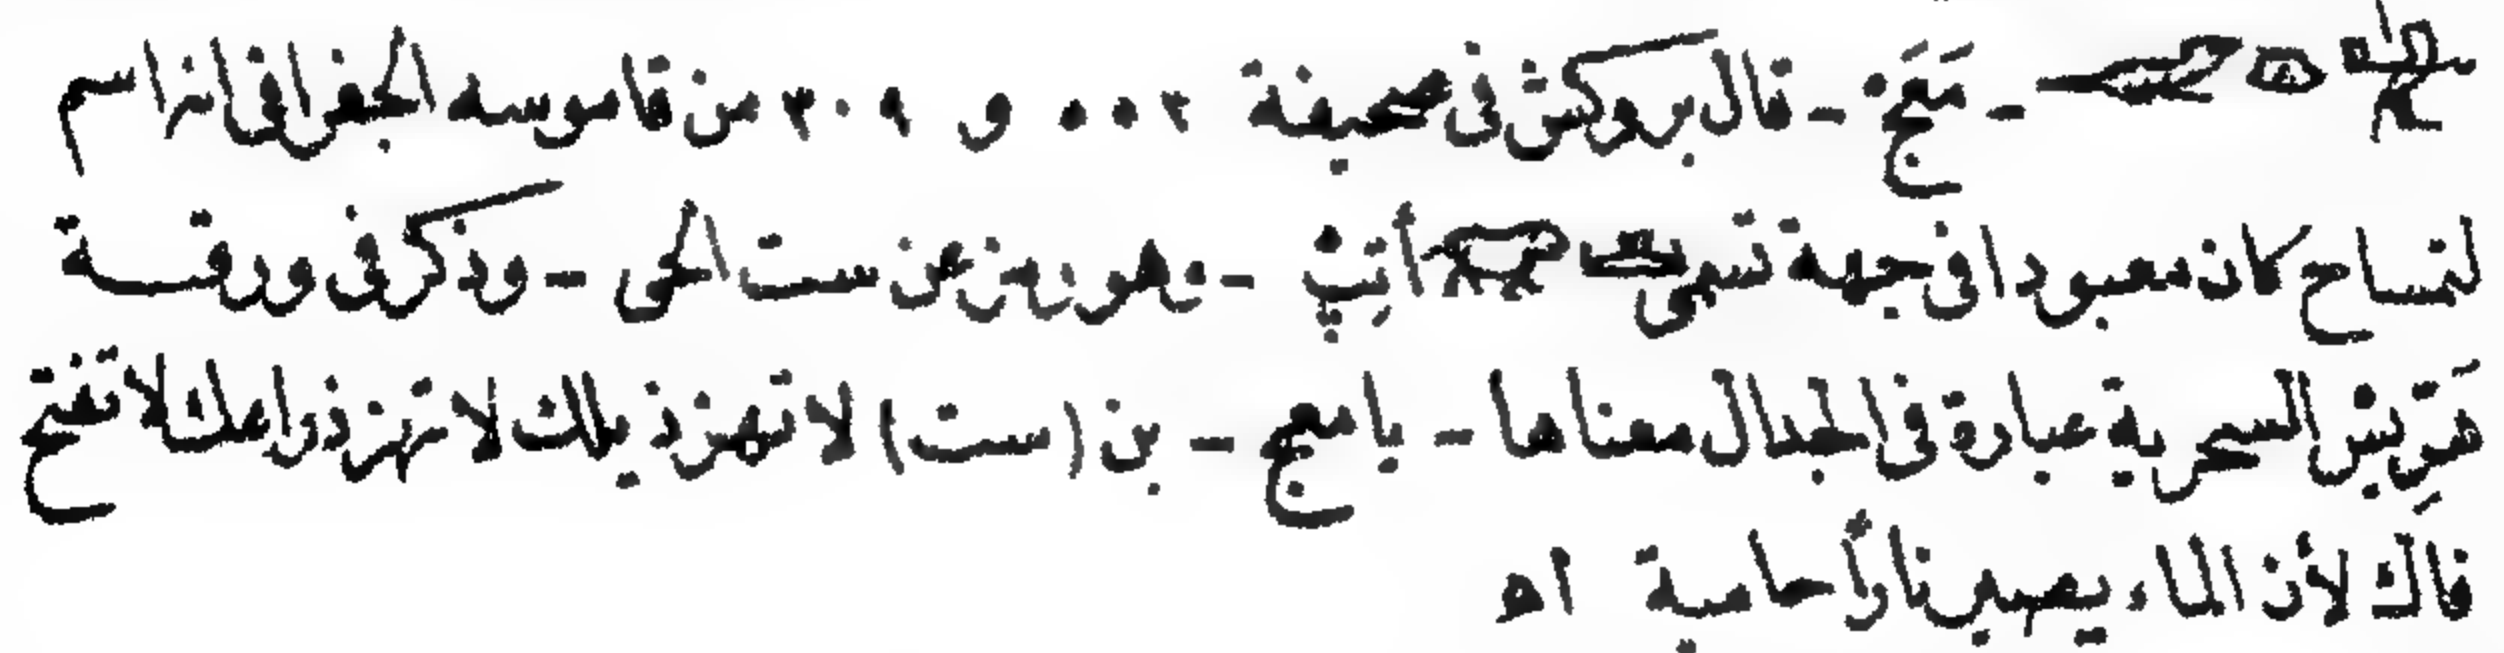 ـ مَغَج ـ قال بروكش فى صحيفة ٥٠٢ و ٢٠٩ من قاموسه الجغرافى انه اسم
لتمساح كان معبودا فى جهة تسمى أنبت ـ هو من ست الحى ـ وذكر فى ورقة
هَرِيس السحرية عبارة فى الجدال معناها ـ يا مغج ـ بن (ست) لا تهز ذيلك لا تهز ذراعك لا تفتح
فاك لأن الماء يصير نارا حامية اه